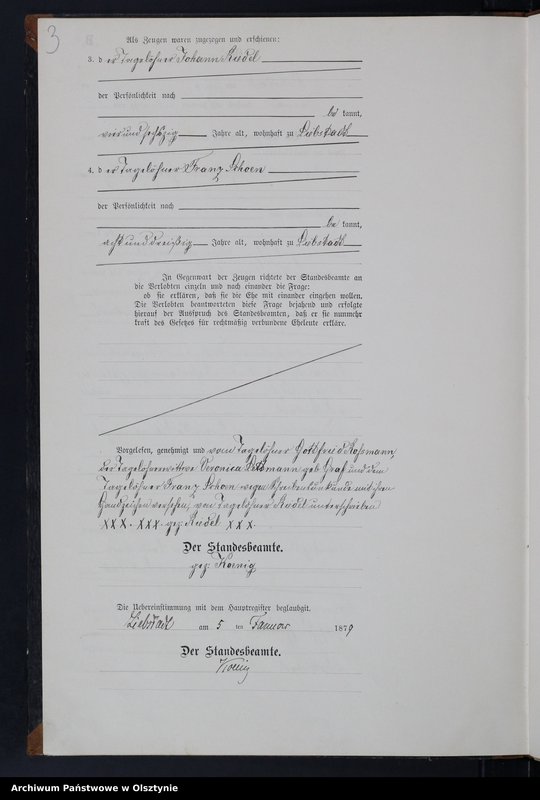 3
Als Zeugen waren zugezogen und erschienen:
3. der Tagelöhner Johann Rudel
der Persönlichkeit nach
be kannt,
vierundsechszig Jahre alt, wohnhaft zu Liebstadt
4. der Tagelöhner Franz Schoen
der Persönlichkeit nach
be kannt,
achtunddreißig Jahre alt, wohnhaft zu Liebstadt
In Gegenwart der Zeugen richtete der Standesbeamte an
die Verlobten einzeln und nach einander die Frage:
ob sie erklären, daß sie die Ehe mit einander eingehen wollen.
Die Verlobten beantworteten diese Frage bejahend und erfolgte
hierauf der Ausspruch des Standesbeamten, daß er sie nunmehr
kraft des Gesetzes für rechtmäßig verbundene Eheleute erkläre.
Vorgelesen, genehmigt und vom Tagelöhner Gottfried Rossmann,
der Tagelöhnerwittwe Veronica geb. Graf und dem
Tagelöhner Franz Schoen wegen Schreibensunkunde mit ihren
Handzeichen versehen, vom Tagelöhner Rudel unterschrieben
XXX. XXX. gez. Rudel XXX.
Der Standesbeamte.
gez. Koenig
Die Uebereinstimmung mit dem Hauptregister beglaubigt.
Liebstadt am 5 ten Januar 1879
Der Standesbeamte.
Koenig
Archiwum Państwowe w Olsztynie